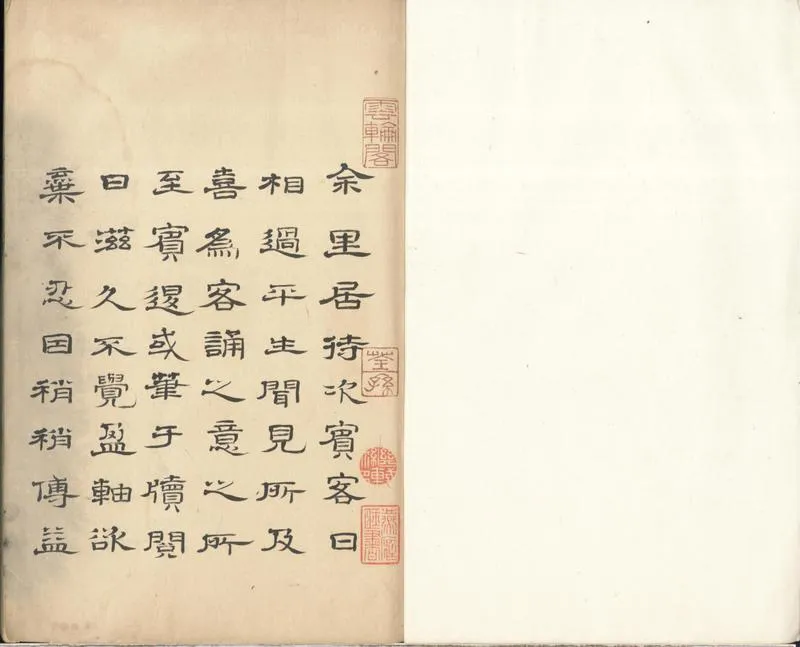 余里居待次賓客日
相過平生聞見所及
喜爲客誦之意之所
至賓退或筆于牘閱
日滋久不覺盈軸欲
棄不忍因稍稍傅益
雲輪閣
荃孫